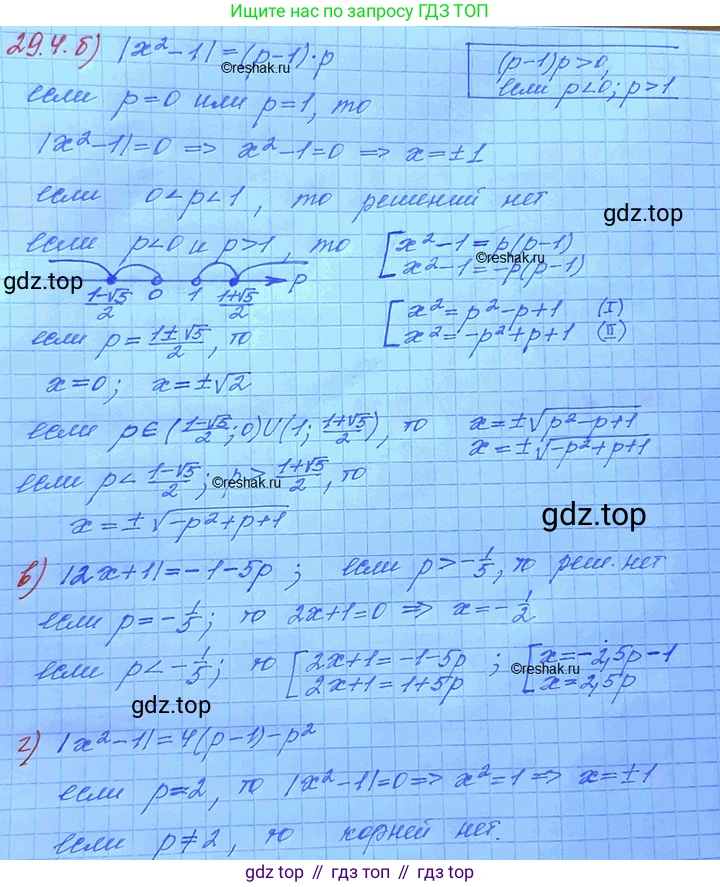 Ищите нас по запросу ГДЗ ТОП
29.4. б) |x²-1|=(p-1)·p
(p-1)p>0,
если p<0; p>1
©reshak.ru
если p=0 или p=1, то
|x²-1|=0 => x²-1=0 => x=±1
если 0<p<1, то решений нет
gdz.top
если p<0 и p>1, то [x²-1=p(p-1)
x²-1=-p(p-1)
©reshak.ru
gdz.top
(1-√5)/2 0 1 (1+√5)/2 p
[x²=p²-p+1 (I)
x²=-p²+p+1 (II)
если p=(1±√5)/2, то
x=0; x=±√2
если p∈((1-√5)/2;0)∪(1;(1+√5)/2), то x=±√(p²-p+1)
x=±√(-p²+p+1)
если p<(1-√5)/2; p>(1+√5)/2, то
©reshak.ru
x=±√(-p²+p+1)
gdz.top
в) |2x+1|=-1-5p; если p>-1/5, то реш. нет
если p=-1/5; то 2x+1=0 => x=-1/2
если p<-1/5; то [2x+1=-1-5p ; [x=-2,5p-1
2x+1=1+5p x=2,5p
©reshak.ru
gdz.top
г) |x²-1|=4(p-1)-p²
если p=2, то |x²-1|=0=> x²=1 => x=±1
если p≠2, то корней нет.
gdz.top // gdz.top // gdz.top